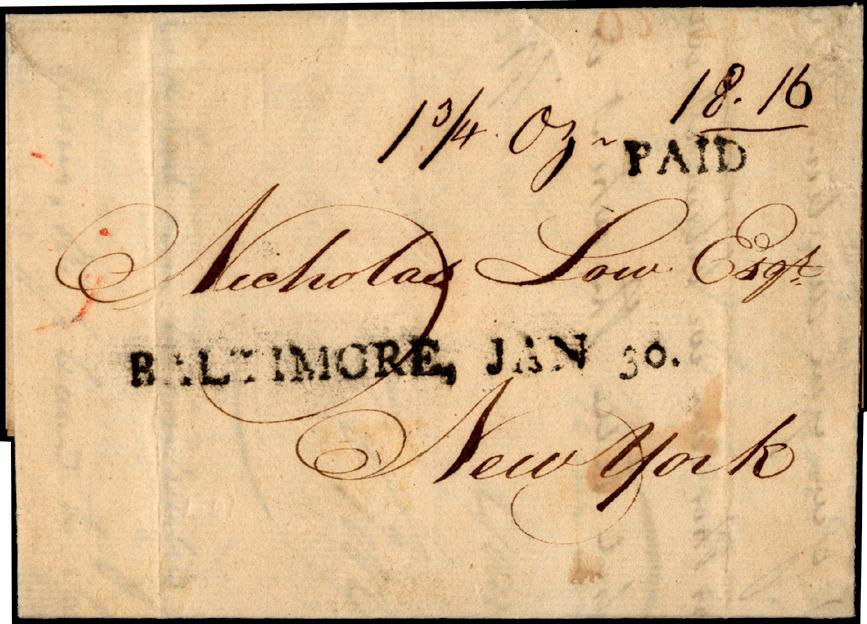 1 3/4. Oz~ 18.16
PAID
Nicholas Low Esqr.
BALTIMORE, JAN 30.
New York